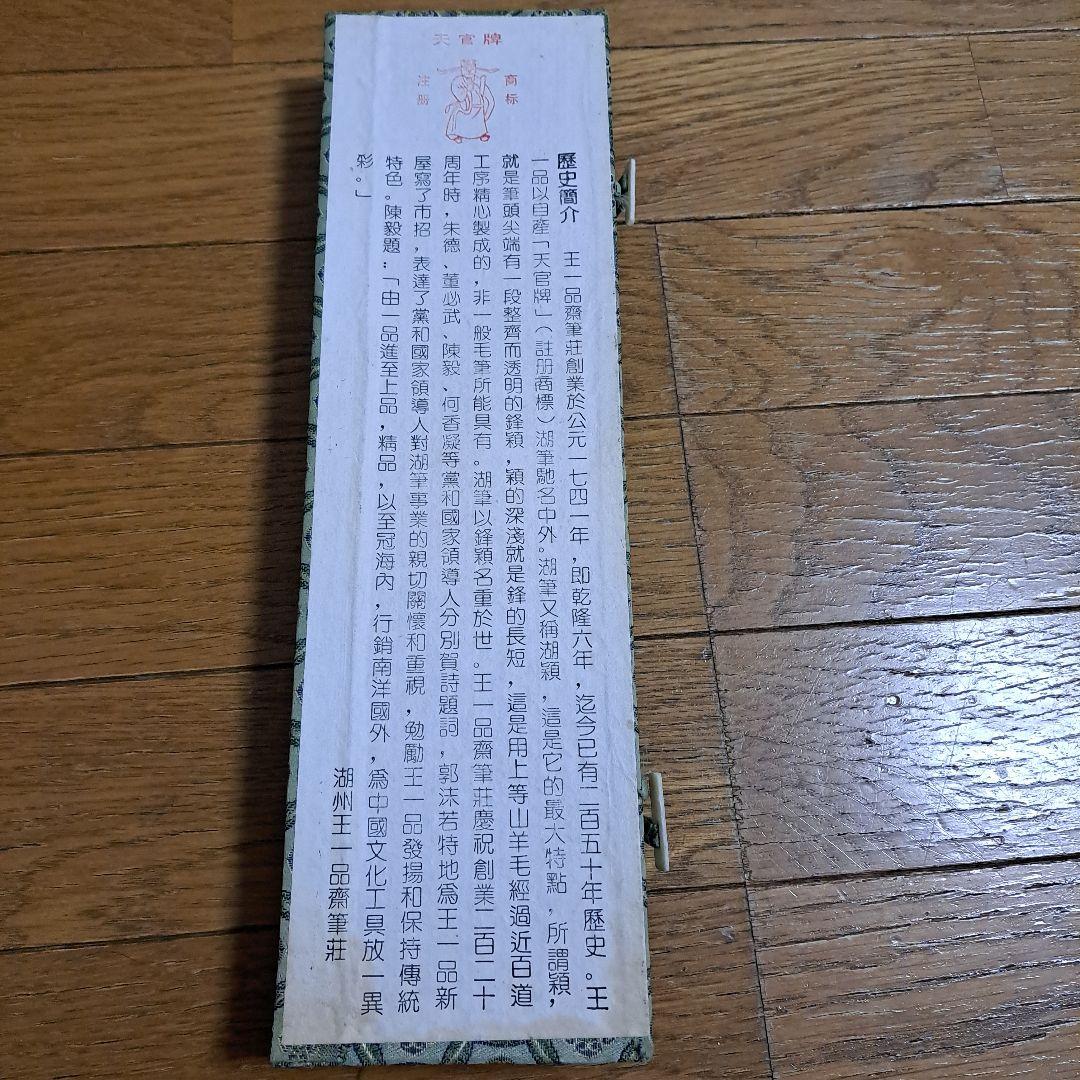 天官牌
注册
商标
歷史簡介 王一品齋筆莊創業於公元一七四一年，即乾隆六年，迄今已有二百五十年歷史。王
一品以自產「天官牌」（註册商標）湖筆馳名中外。湖筆又稱湖穎，這是它的最大特點，所謂穎，
就是筆頭尖端有一段整齊而透明的鋒穎，穎的深淺就是鋒的長短，這是用上等山羊毛經過近百道
工序精心製成的，非一般毛筆所能具有。湖筆以鋒穎名重於世。王一品齋筆莊慶祝創業二百二十
周年時，朱德、董必武、陳毅、何香凝等黨和國家領導人分別賀詩題詞，郭沫若特地爲王一品新
屋寫了市招，表達了黨和國家領導人對湖筆事業的親切關懷和重視，勉勵王一品發揚和保持傳統
特色。陳毅題：「由一品進至上品，精品，以至冠海內，行銷南洋國外，爲中國文化工具放一異
彩。」
湖州王一品齋筆莊